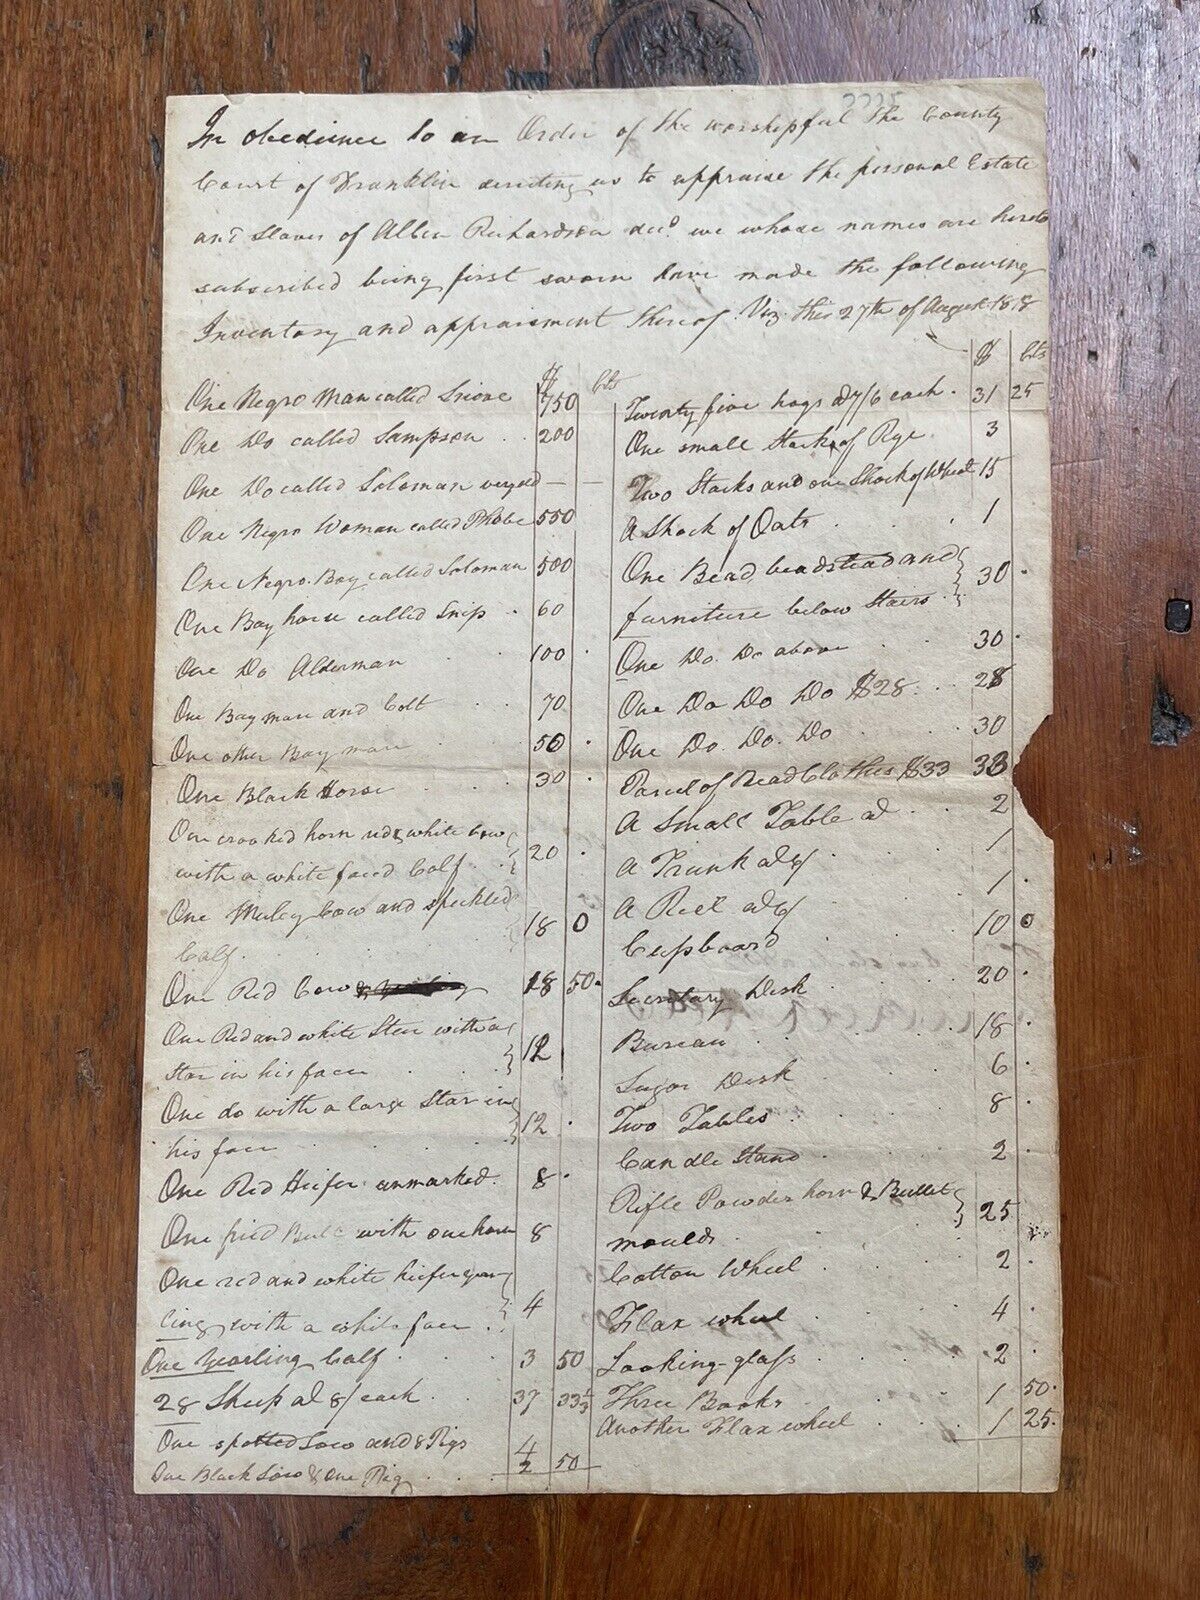 2225
In obedience to an Order of the worshipful the County
Court of Franklin directing us to appraise the personal Estate
and Slaves of Allen Richardson decd. we whose names are hereto
subscribed being first sworn have made the following
Inventory and appraisment thereof Viz. this 27th of August 1818
$ Cts
One Negro Man called 750
One Do called Sampson . . 200
One Do called Soloman very old — —
One Negro Woman called Phebe 550
One Negro Boy called Soloman 500
One Bay horse called Snip . 60
One Do Alderman . . 100 .
One Bay mare and Colt . . 70
One other Bay mare 50 .
One Black Horse . . 30 .
One crooked horn red & white Cow
with a white faced Calf . . } 20 .
One Muley Cow and speckled
Calf . . . } 18 0
One Red Cow 18 50.
One Red and white Steer with a
Star in his face . . . } 12
One do with a large Star in
his face . . } 12 .
One Red Heifer unmarked. 8 .
One pied Bull with one horn 8
One red and white heifer year-
ling with a white face . } 4
One Yearling Calf . . . 3 50
28 Sheep at 8/ each . . 37 33 1/3
One spotted Sow and 8 Pigs 4
One Black Sow & One Pig . . 2 50
$ Cts
Twenty five hogs at 7/6 each . 31 25
One small Stack of Rye . 3
Two Stacks and one Shock of Wheat 15
A Shock of Oats . . . 1
One Bead beadstead and
furniture below Stairs . } 30 .
One Do. Do above . . 30 .
One Do Do Do $28 . . 28
One Do. Do. Do . . 30
Parcel of Bead Clothes $33 33
A Small Table at . . 2
A Trunk at 6/ . . 1
A Reel at 6/ . . 1 .
Cupboard . . . 10 0
Secretary Desk . . 20 .
Bureau . . . 18 .
Sugar Desk . . 6 .
Two Tables . . . 8 .
Candle Stand . . . 2 .
Rifle Powder horn & Bullet
moulds . . . } 25
Cotton Wheel . . . 2 .
Flax wheel . . . 4 .
Looking-glass . . . 2 .
Three Books . . . 1 50.
Another Flax wheel . . . 1 25.